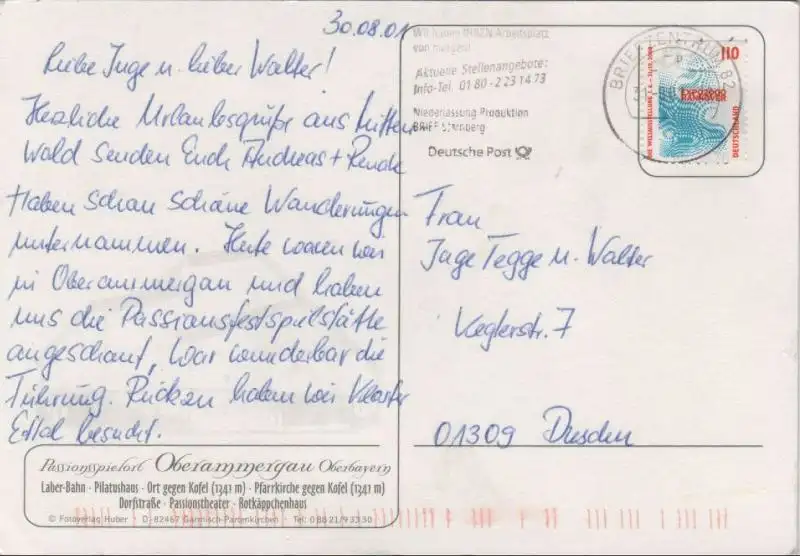 30.08.01
Liebe Inge u. lieber Walter!
Herzliche Urlaubsgrüße aus Mitten
wald senden Euch Andreas + Renate
Haben schon schöne Wanderungen
unternommen. Heute waren wir
in Oberammergau und haben
uns die Passionsfestspielstätte
angeschaut, war wunderbar die
Führung. Rückzu haben wir Kloster
Ettal besucht.
Passionsspielort Oberammergau Oberbayern
Laber-Bahn · Pilatushaus · Ort gegen Kofel (1341 m) · Pfarrkirche gegen Kofel (1341 m)
Dorfstraße · Passionstheater · Rotkäppchenhaus
© Fotoverlag Huber D-82467 Garmisch-Partenkirchen Tel: 0 88 21/9 33 30
Wir haben IHREN Arbeitsplatz
von morgen!
Aktuelle Stellenangebote:
Info-Tel. 01 80 - 2 23 14 73
Niederlassung Produktion
BRIEF Starnberg
Deutsche Post
BRIEFZENTRUM 82
110
DIE WELTAUSSTELLUNG
EXPO2000
HANNOVER
DEUTSCHLAND
Frau
Inge Tegge u. Walter
Keglerstr. 7
01309 Dresden